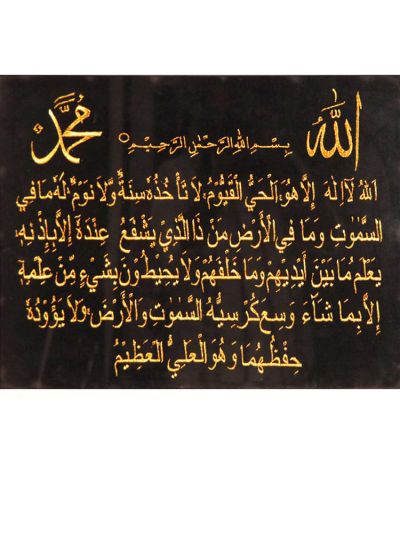 الله
محمد
بِسْمِ اللهِ الرَّحْمٰنِ الرَّحِيْمِ
اللهُ لَآ اِلٰهَ اِلَّا هُوَ اَلْحَيُّ الْقَيُّوْمُ لَا تَأْخُذُهُ سِنَةٌ وَّلَا نَوْمٌ لَهُ مَا فِي
السَّمٰوٰتِ وَمَا فِي الْأَرْضِ مَنْ ذَا الَّذِيْ يَشْفَعُ عِنْدَهُ إِلَّا بِإِذْنِهِ
يَعْلَمُ مَا بَيْنَ أَيْدِيْهِمْ وَمَا خَلْفَهُمْ وَلَا يُحِيْطُوْنَ بِشَيْءٍ مِّنْ عِلْمِهِ
إِلَّا بِمَا شَآءَ وَسِعَ كُرْسِيُّهُ السَّمٰوٰتِ وَالْأَرْضَ وَلَا يَؤُوْدُهُ
حِفْظُهُمَا وَهُوَ الْعَلِيُّ الْعَظِيْمُ